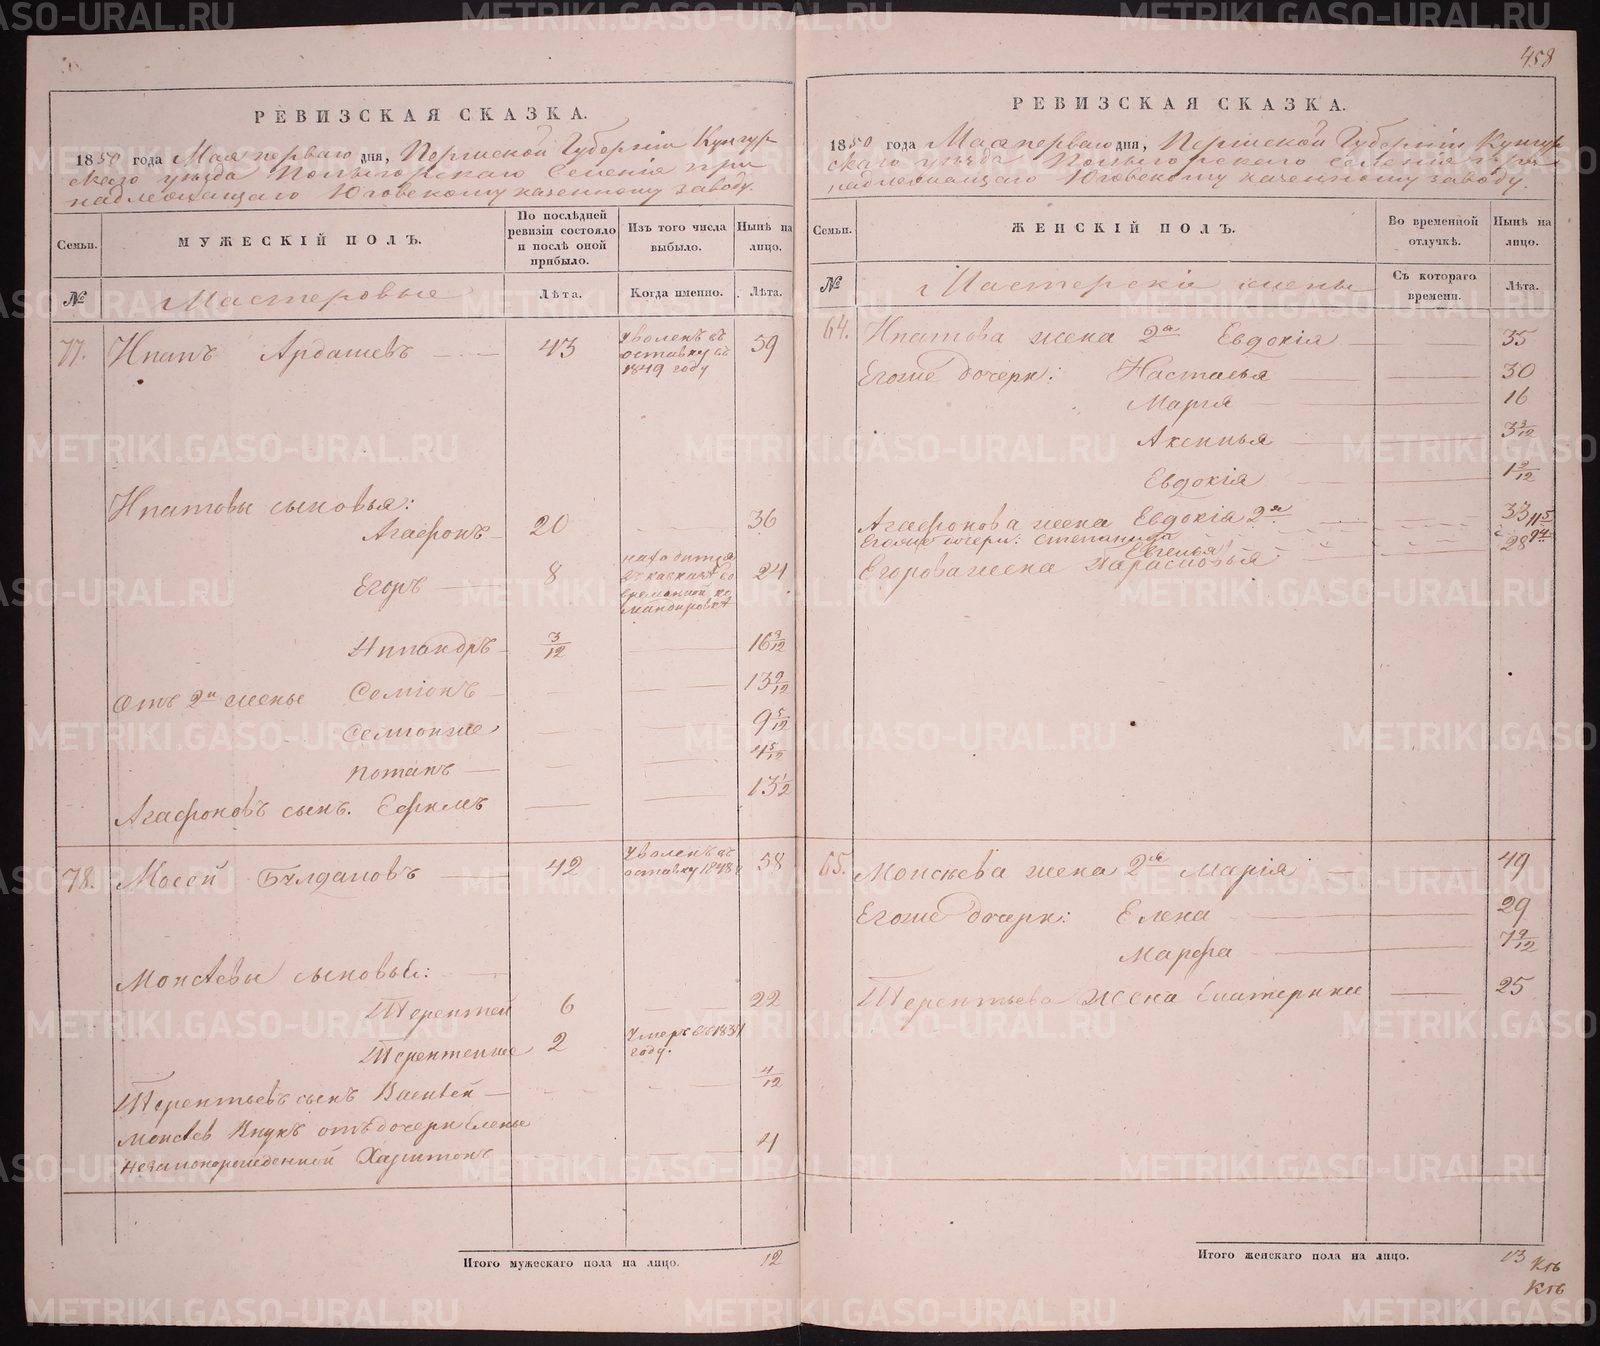 458
РЕВИЗСКАЯ СКАЗКА.
1850 года Мая перваго дня, Пермской Губернiи Кунгур
скаго уезда Селенiя при
надлежащаго Юговскому казенному заводу.
Семьи.
МУЖЕСКІЙ ПОЛЪ.
По послѣдней ревизіи состояло и послѣ оной прибыло.
Изъ того числа выбыло.
Нынѣ на лицо.
№
Мастеровые
Лѣта.
Когда именно.
Лѣта.
77. Ипатъ Ардашевъ 43 Уволенъ въ оставку въ 1849 году 59
Ипатовы сыновья:
Агафонъ 20 36
Егоръ 8 находится во временной командировкѣ 24
Никандръ 3/12 16 3/12
Отъ 2й жены Семіонъ 13 9/12
Семіонже 9 5/12
Потапъ 4 5/12
Агафоновъ сынъ. Ефимъ 13 1/2
78. Мосей Булдаковъ 42 Уволенъ въ оставку 1848 58
Моисѣевы сыновья:
Терентей 6 22
Терентейже 2 Умеръ въ 1837 году.
Терентьевъ сынъ 4/12
Моисѣев Внукъ отъ дочери Елены
незаконорожденной Харитонъ 4
Итого мужескаго пола на лицо. 12
РЕВИЗСКАЯ СКАЗКА.
1850 года Мая перваго дня, Пермской Губернiи Кунгур
скаго уезда селенiя при
надлежащаго Юговскому казенному заводу.
Семьи.
ЖЕНСКІЙ ПОЛЪ.
Во временной отлучкѣ.
Нынѣ на лицо.
№
Мастерскiя жены
Съ котораго времени.
Лѣта.
64. Ипатова жена 2я Евдокія 35
Егоже дочери: Настасья 30
Марія 16
Аксинья 3 3/12
Евдокія 1 2/12
Агафонова жена Евдокія 2я 33
Егоже дочери: Степанида 11 5
Евгенья
Егорова жена Парасковья 28
65. Моисеева жена 2я Марія 49
Егоже дочери: Елена 29
Марфа 7 9/12
Терентьева жена Екатерина 25
Итого женскаго пола на лицо. 13
METRIKI.GASO-URAL.RU